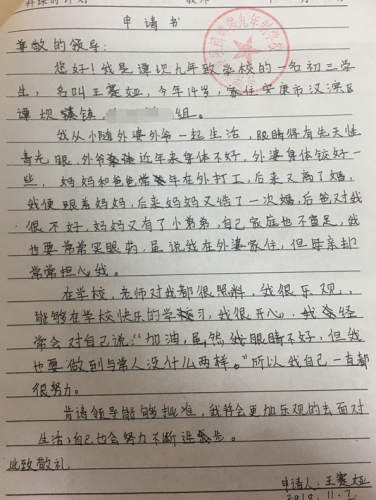 申请书
尊敬的领导:
您好!我是谭坝九年致学校的一名初三学
生,名叫王赛娅,今年14岁,家住安康市汉滨区
谭坝镇,组。
我从小随外婆外爷一起生活,眼睛得有先天性
青光眼,外爷近年来身体不好,外婆身体较好一
些,妈妈和爸爸常年在外打工,后来又离了婚,
我便跟着妈妈,后来妈妈又结了一次婚,后爸对我
很不好,妈妈又有了小弟弟,自己家庭也不富足,我
也要常常买眼药,虽说我在外婆家住,但母亲却
常常担心我。
在学校,老师对我都很照料,我很乐观,
能够在学校快乐的学习,我很开心,我经
常会对自己说:“加油,虽然我眼睛不好,但我
也要做到与常人没什么两样。”所以我自己一直都
很努力。
肯请领导能够批准,我将会更加乐观的去面对
生活,自己也会努力不断进先。
此致敬礼
申请人:王赛娅